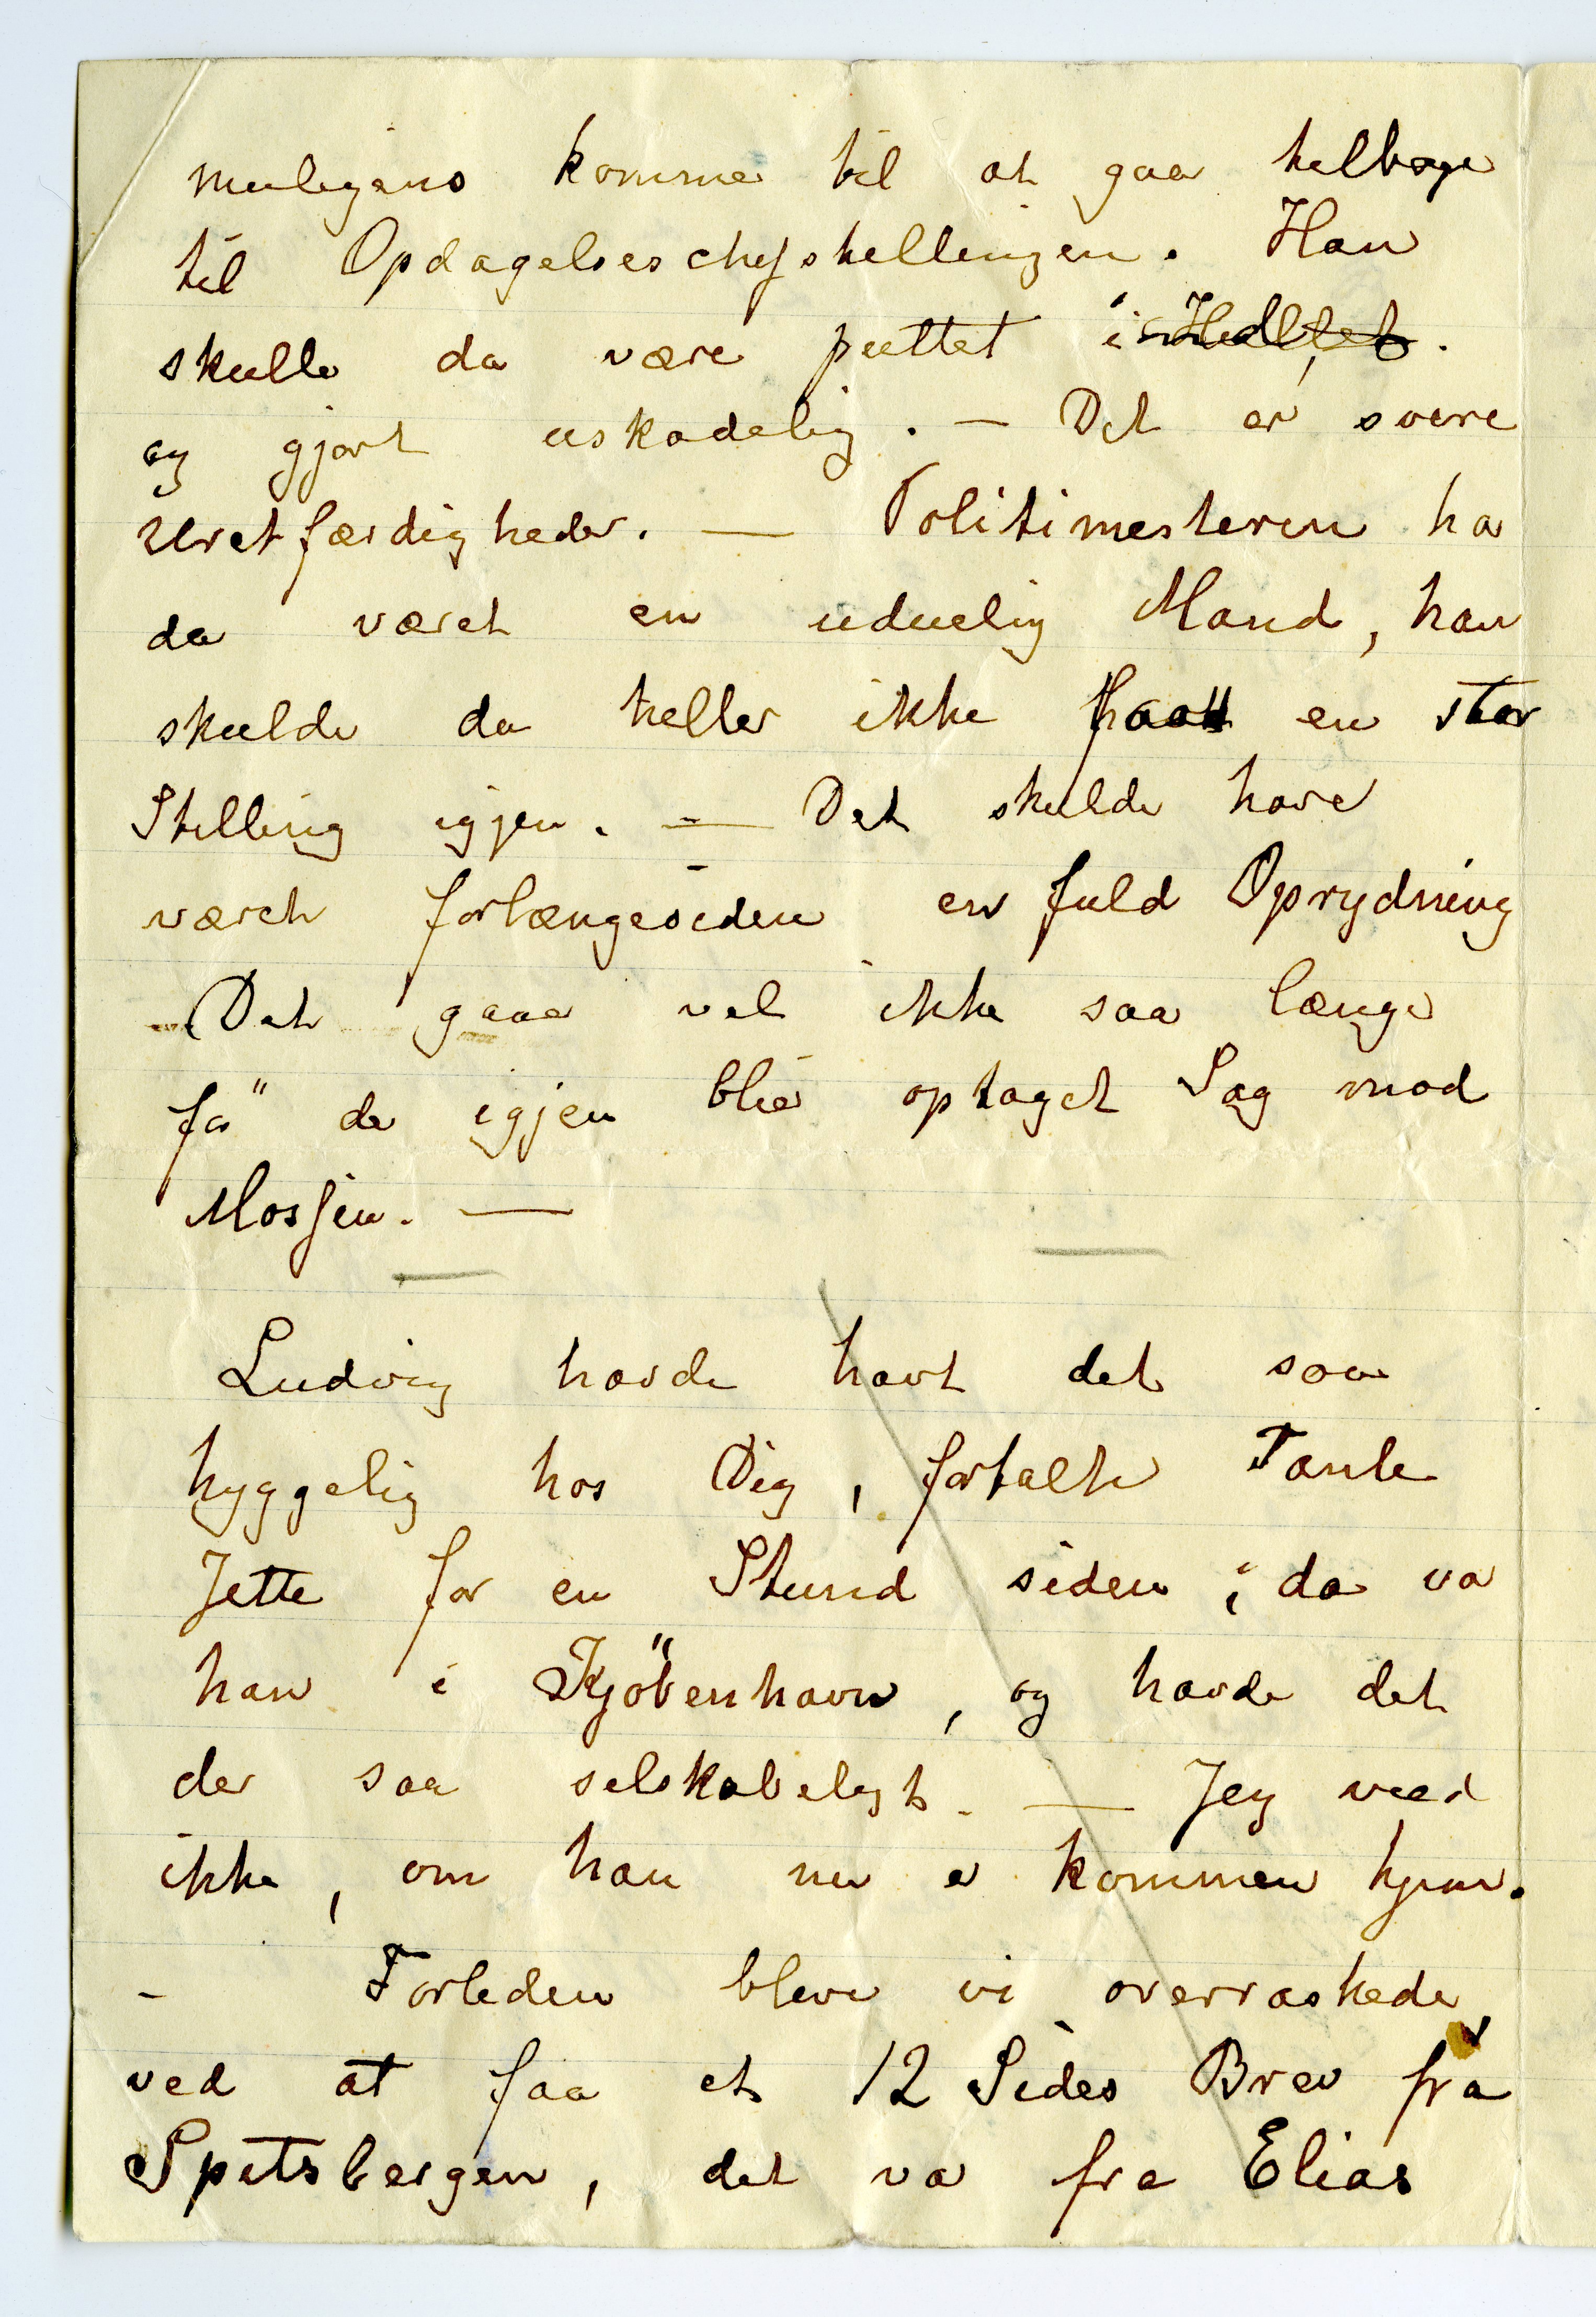 muligens komme til at gaa tilbage
til Opdagelseschefstellingen. Han
skulle da være puttet i Hullet.
og gjort uskadelig. — Det er svere
Uretfærdigheder. — Politimesteren ha
da været en uduelig Mand, han
skulde da heller ikke faat en stor
Stilling igjen. — Det skulde have
væreh forlængesiden en fuld Oprydning
– Det gaar vel ikke saa længe
før de igjen blir optaget Sag mod
Mossjøn. —
Ludvig havde havt det saa
hyggelig hos Dig, fortalte Tante
Jette for en Stund siden; da va
han i Kjöbenhavn, og havde det
der saa selskabeligt. — Jeg veed
ikke, om han nu er kommen hjem.
– Forleden bleve vi overraskede
ved at faa et 12 Sides Brev fra
Spitsbergen, det va fra Elias